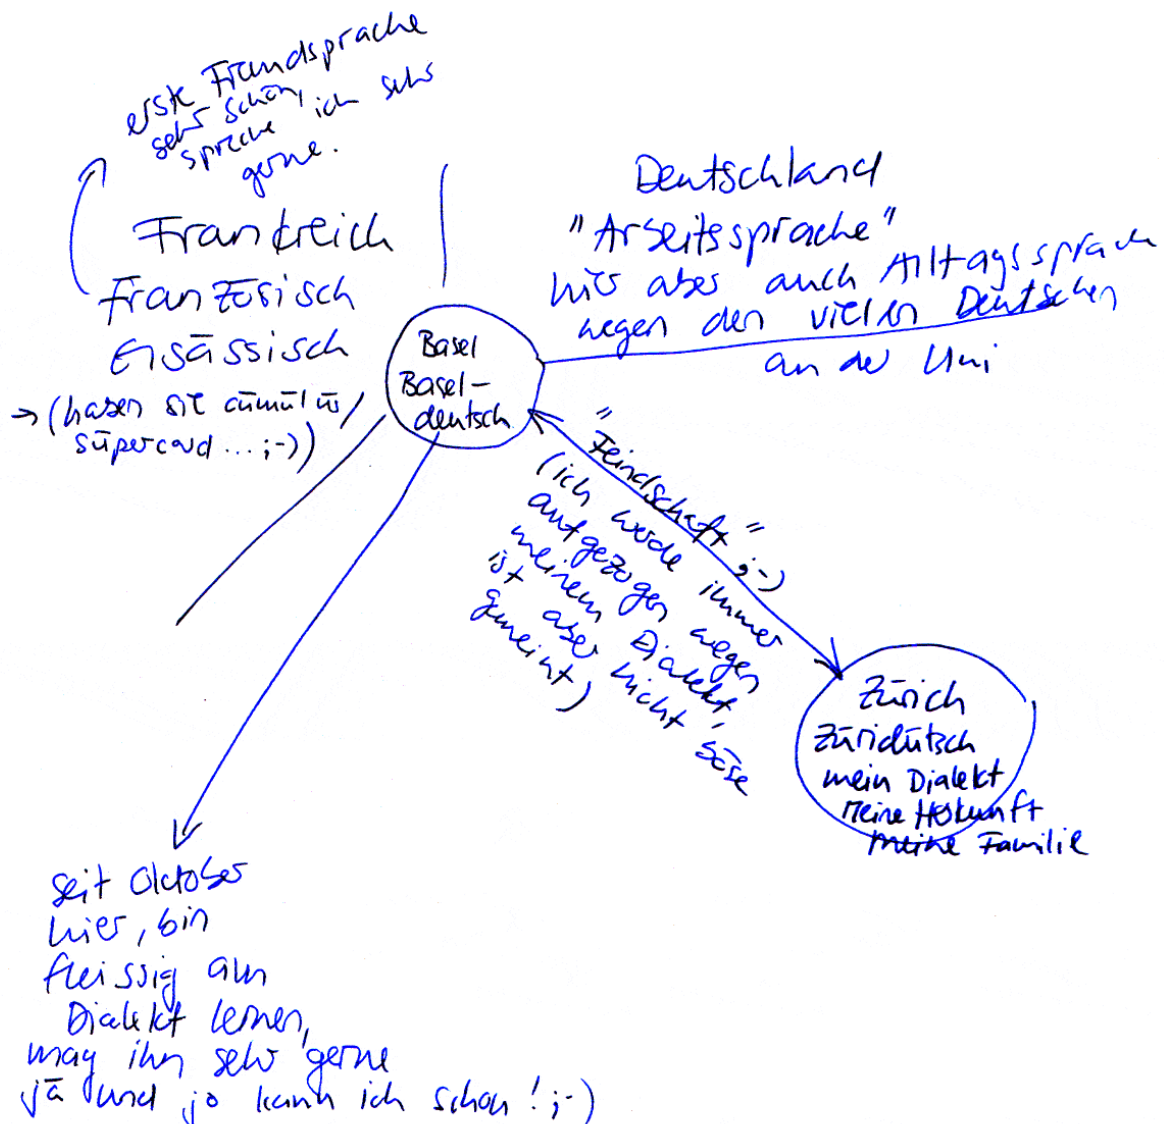 erste Fremdsprache
sehr schön,
spreche ich sehr
gerne.
Frankreich
Französisch
Elsässisch
→ (haben sie cümülüs/
süpercard ... ;-))
Deutschland
"Arbeitssprache"
hier aber auch Alltagssprache
wegen den vielen Deutschen
an der Uni
Basel
Basel-
deutsch
"Feindschaft" ;-)
(ich werde immer
aufgezogen wegen
meinem Dialekt,
ist aber nicht böse
gemeint)
Zürich
Züridütsch
mein Dialekt
meine Herkunft
meine Familie
seit Oktober
hier, bin
fleissig am
Dialekt lernen,
mag ihn sehr gerne
jä und jo kann ich schon! ;-)